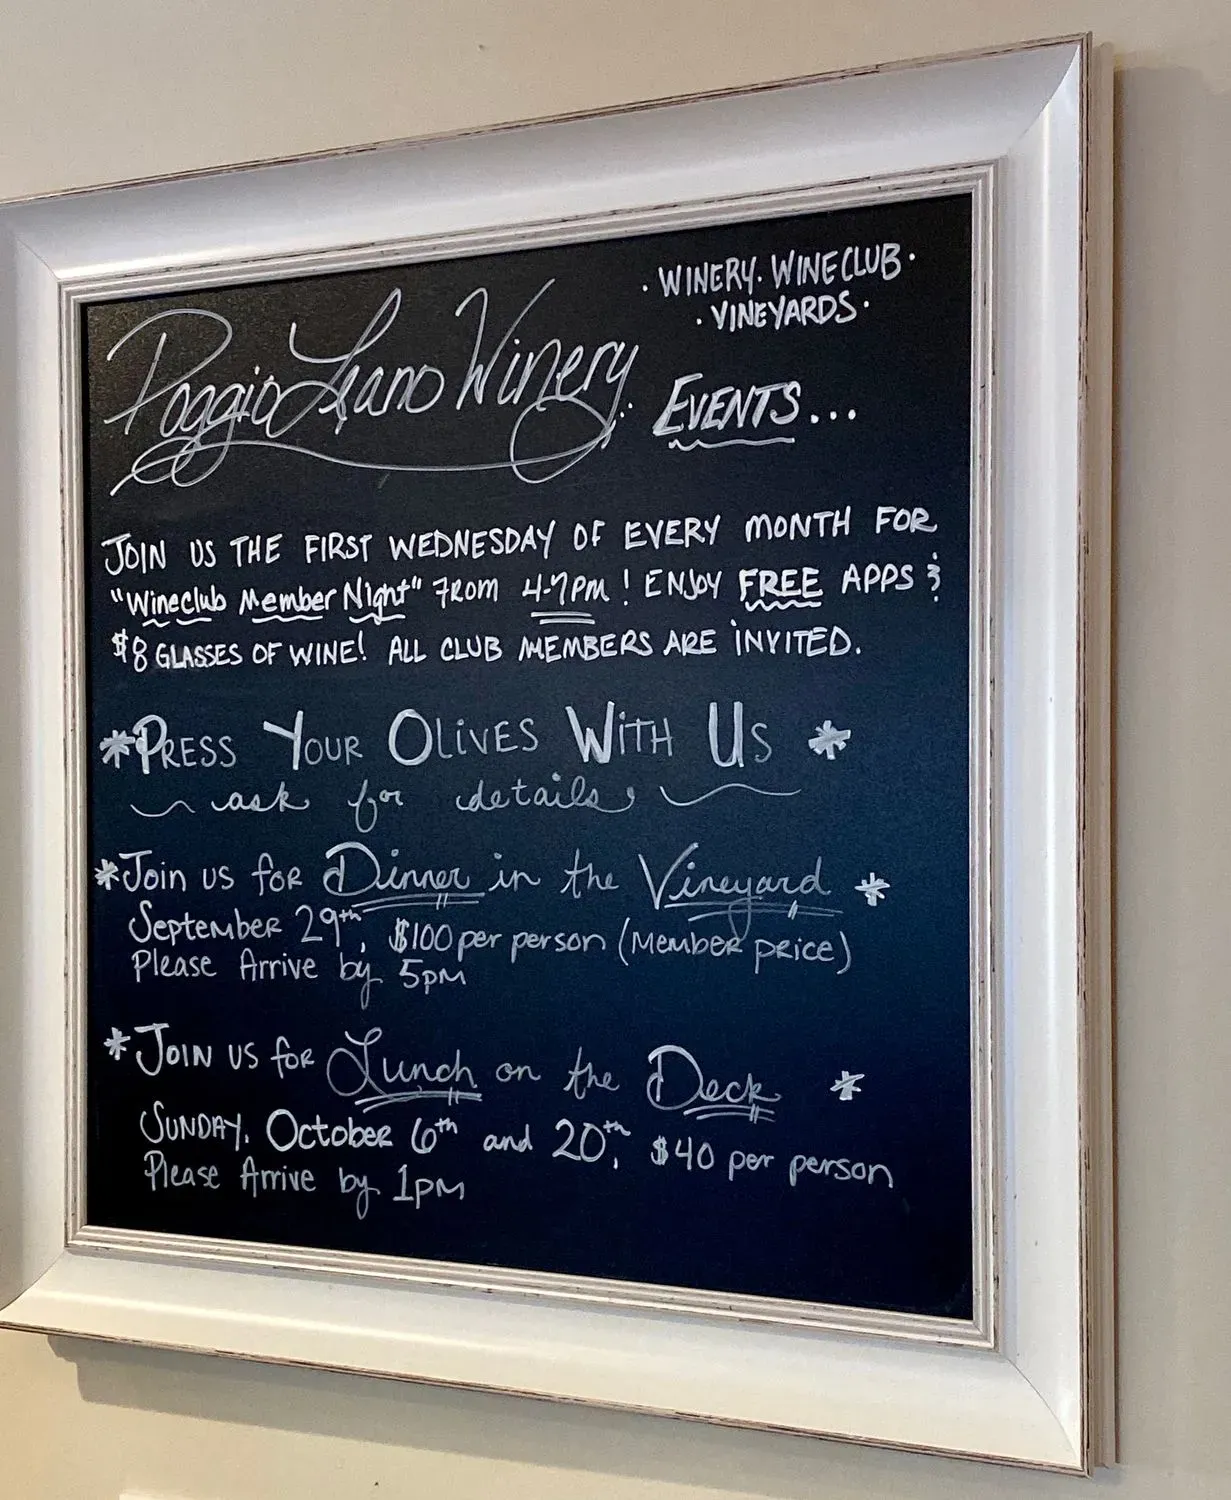 Poggio Leano Winery
· WINERY · WINECLUB ·
· VINEYARDS ·
EVENTS...
JOIN US THE FIRST WEDNESDAY OF EVERY MONTH FOR
"Wineclub Member Night" FROM 4-7PM! ENJOY FREE APPS &
$8 GLASSES OF WINE! ALL CLUB MEMBERS ARE INVITED.
*PRESS YOUR OLIVES WITH US *
ask for details
*Join us for Dinner in the Vineyard *
September 29th, $100 per person (Member price)
Please Arrive by 5pm
*Join us for Lunch on the Deck *
SUNDAY, October 6th and 20th, $40 per person
Please Arrive by 1pm